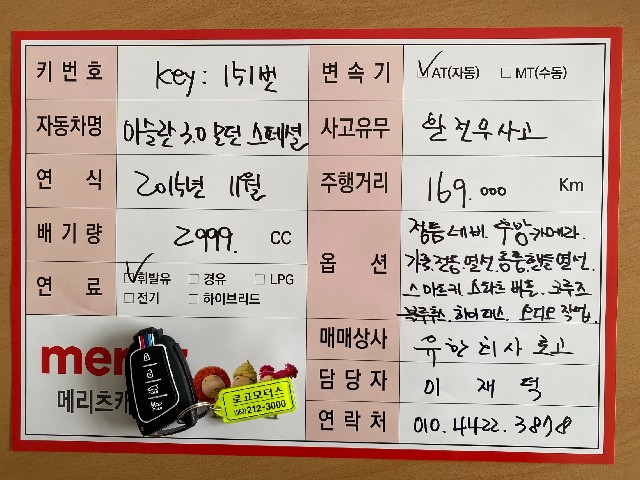 키번호 Key: 151번
자동차명 아슬란 3.0 모던 스페셜
연식 2015년 11월
배기량 2999. CC
연료 ☑휘발유 □경유 □LPG
□전기 □하이브리드
변속기 ☑AT(자동) □MT(수동)
사고유무 완전무사고
주행거리 169.000 Km
옵션 정품네비. 후방카메라.
가죽.전동.열선.통풍.핸들열선.
스마트키 스타트버튼. 크루즈
블루투스. 하이패스. 오디오 작업.
매매상사 유한회사 로고
담당자 이재덕
연락처 010.4422.3878
메리츠캐
로고모터스
212-3000